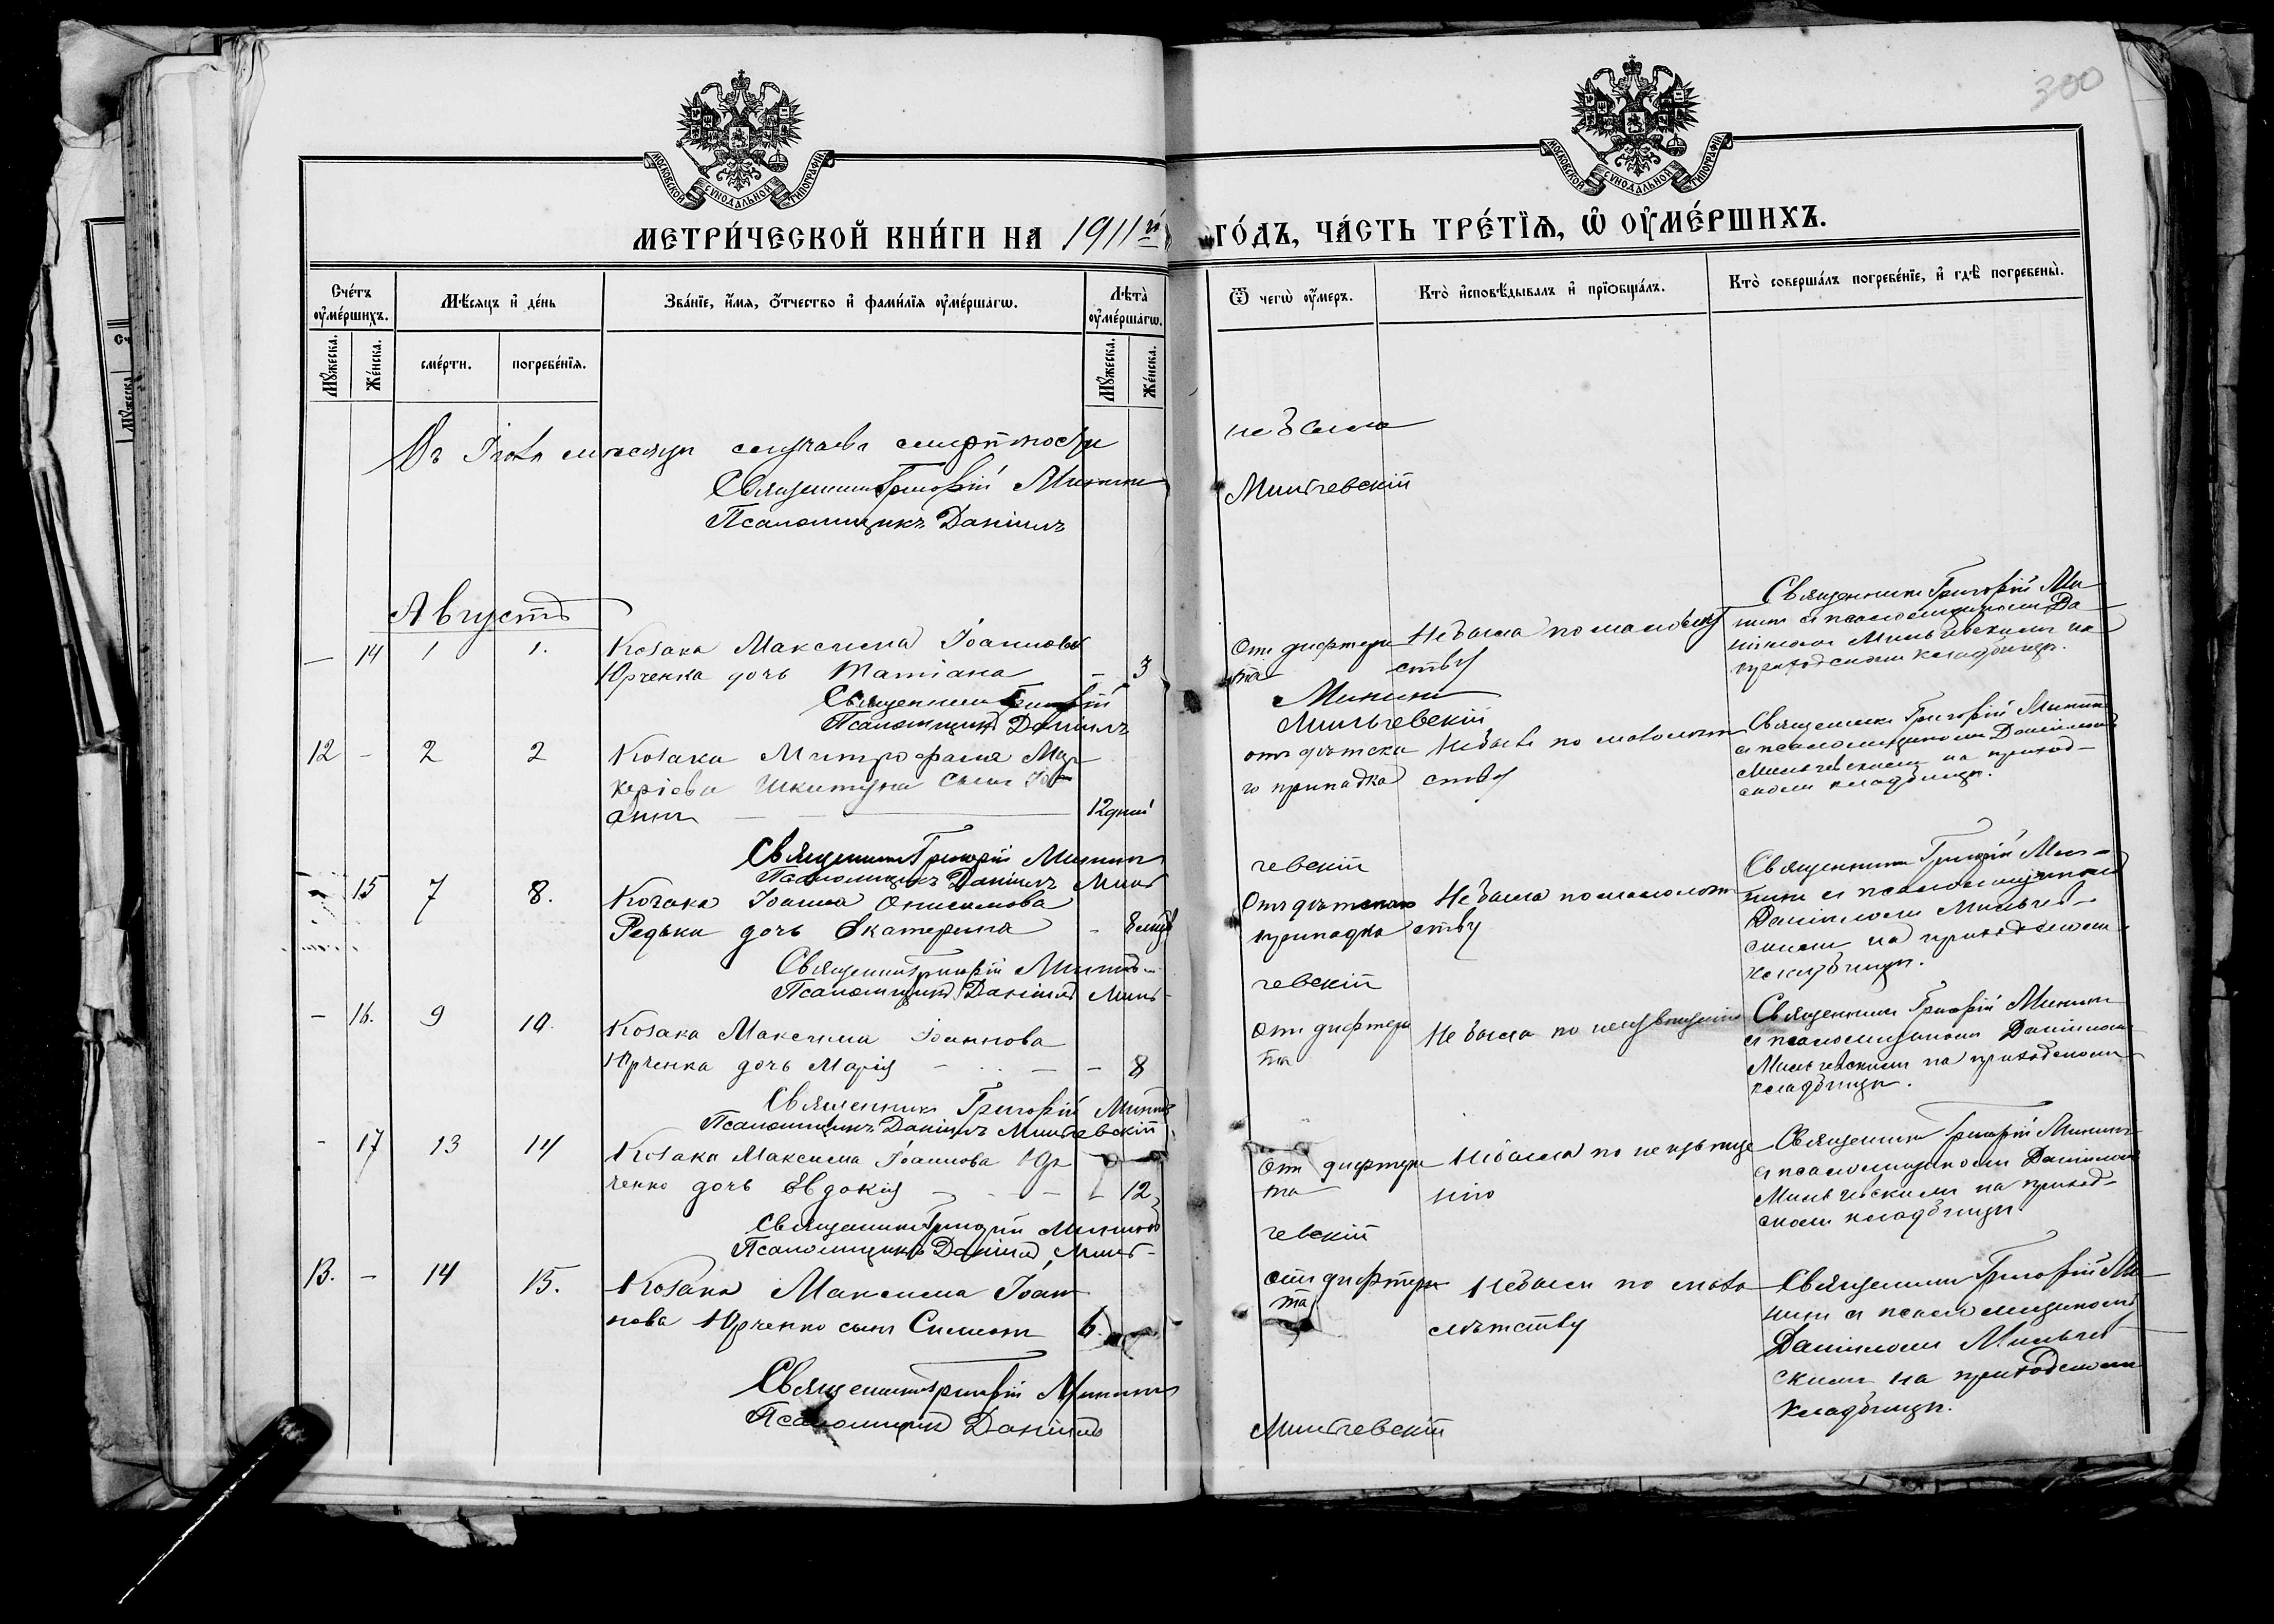 300
МОСКОВСКОЙ СѴНОДАЛЬНОЙ ТИПОГРАФІИ
МОСКОВСКОЙ СѴНОДАЛЬНОЙ ТИПОГРАФІИ
МЕТРИ́ЧЕСКОЙ КНИ́ГИ НА 1911й ГО́ДЪ, ЧА́СТЬ ТРЕ́ТІѦ, Ѡ҆ ОУ҆МЕ́РШИХЪ.
Сче́тъ оу҆ме́ршихъ.
Мꙋ́жеска.
Же́нска.
Мѣ́сяцъ и҆ де́нь
сме́рти.
погребе́нїѧ.
Зва́нїе, и҆́мѧ, ѻ҆́тчество и҆ фами́лїѧ оу҆ме́ршагѡ.
Лѣта̀ оу҆ме́ршагѡ.
Мꙋ́жеска.
Же́нска.
Ѿ чегѡ̀ оу҆́меръ.
Кто̀ и҆сповѣ́дывалъ и҆ прїѡбща́лъ.
Кто̀ соверша́лъ погребе́нїе, и҆ гдѣ̀ погребены̀.
Въ Іюлѣ мѣсяцѣ случаевъ смертности не было
Священникъ Григорій Мининъ
Псаломщикъ Даніилъ Мильчевскій
Августъ
— 14 1 1. Козака Максима Іоаннова
Юрченка дочь Татіана — 3
От дифтери
та
Не была по малолѣт
ству
Священникъ Григорій Ми
нинъ съ псаломщикомъ Да
ніиломъ Мильчевскимъ на
приходскомъ кладбищѣ.
Священникъ Григорій Мининъ
Псаломщикъ Даніилъ Мильчевскій
12 — 2 2 Козака Митрофана Мар
керіева Шкитуна сынъ Іо
аннъ — 12 дней
отъ дѣтска
го припадка
Не былъ по малолѣт
ству
Священникъ Григорій Мининъ
съ псаломщикомъ Даніиломъ
Мильчевскимъ на приход-
скомъ кладбищѣ.
Священникъ Григорій Мининъ
Псаломщикъ Даніилъ Мильчевскій
— 15 7 8. Козака Іоанна Онисимова
Редьки дочь Екатерина - 8 мѣс
Отъ дѣтскаго
припадка
Не была по малолѣт
ству
Священникъ Григорій Ми-
нинъ съ псаломщикомъ
Даніиломъ Мильчев-
скимъ на приходскомъ
кладбищѣ.
Священникъ Григорій Мининъ
Псаломщикъ Даніилъ Мильчевскій
— 16. 9 10. Козака Максима Іоаннова
Юрченка дочь Марія — — 8
От дифтери
та
Не была по неизвѣщенію
Священникъ Григорій Мининъ
съ псаломщикомъ Даніиломъ
Мильчевскимъ на приходскомъ
кладбищѣ.
Священникъ Григорій Мининъ
Псаломщикъ Даніилъ Мильчевскій
- 17 13 14 Козака Максима Іоаннова Юр
ченко дочь Евдокія — — 12
От дифтери
та
Не была по неизвѣще
нію
Священникъ Григорій Мининъ
съ псаломщикомъ Даніиломъ
Мильчевскимъ на приход-
скомъ кладбищѣ.
Священникъ Григорій Мининъ
Псаломщикъ Даніилъ Мильчевскій
13. — 14 15. Козака Максима Іоан
нова Юрченко сынъ Симеонъ 6.
отъ дифтери
та
Не былъ по мало
лѣтству
Священникъ Григорій Ми
нинъ съ псаломщикомъ
Даніиломъ Мильчев
скимъ на приходскомъ
кладбищѣ.
Священникъ Григорій Мининъ
Псаломщикъ Даніилъ Мильчевскій